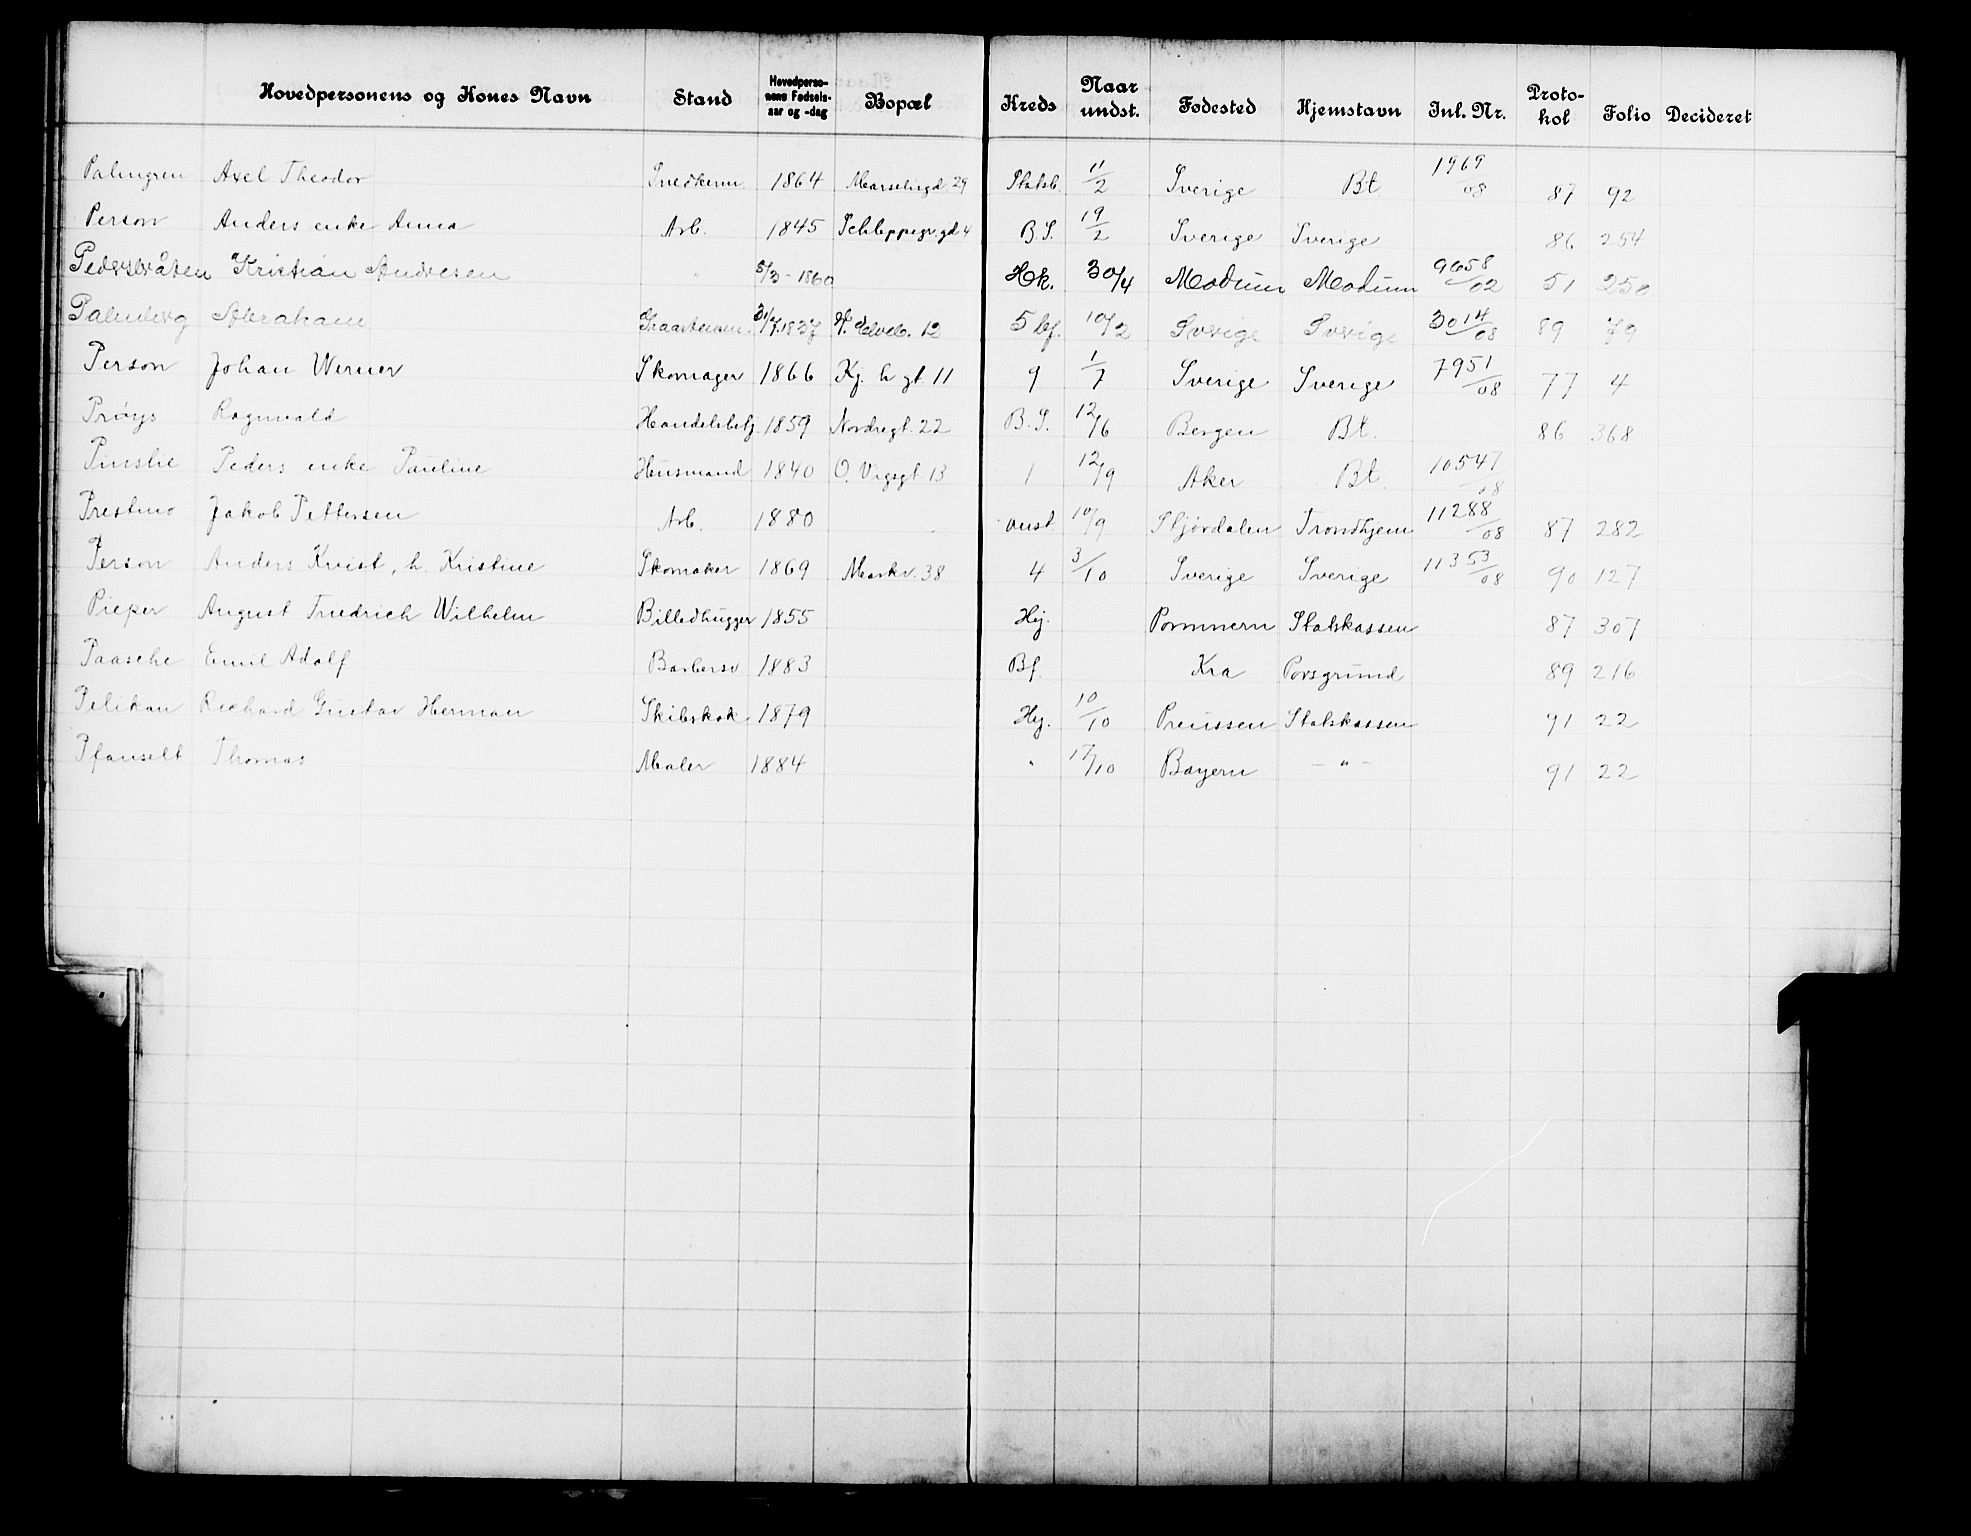 Hovedpersonens og Kones Navn Stand Hovedpersonens Fødsels-aar og -dag Bopæl Kreds Naar undst. Fødested Hjemstavn Inl. Nr. Protokol Folio Decideret
Palmgren Axel Theodor Snedkerm. 1864 Marselisgd. 29 Statsb. 11/2 Sverige Bt. 1969/08 87 92
Person Anders enke Anna Arb. 1845 Schleppegr.gd 4 B.S. 19/2 Sverige Sverige 86 254
Pedersbråten Kristian Andresen " 5/3-1860 Hk. 30/4 Modum Modum 9658/02 51 250
Palmberg Abraham 31/7.1837 12 5 bf. 10/2 Sverige Sverige 3014/08 89 79
Person Johan Werner Skomager 1866 Kj. h gt 11 9 1/7 Sverige Sverige 7951/08 77 4
Prøys Ragnvald Handelsbetj. 1859 Nordregt. 22 B.S. 12/6 Bergen Bt. 86 368
Pinslie Peders enke Pauline Husmand 1840 O. Vogsgt. 13 1 12/9 Aker Bt. 10547/08
Prestmo Jakob Pettersen Arb. 1880 anst. 10/9 Stjørdalen Trondhjem 11288/08 87 282
Person Anders Kvist, h. Kristine Skomaker 1869 Markv. 38 4 3/10 Sverige Sverige 11353/08 90 127
Pieper August Friedrich Wilhelm Billedhugger 1855 Hj. Pommern Statskassen 87 307
Paasche Emil Adolf Barbersv. 1883 Bf. Kra Porsgrund 89 216
Pelikan Richard Gustav Herman Skibskok 1879 Hj. 10/10 Preussen Statskassen 91 22
Pfanselt Thomas Maler 1884 " 17/10 Bayern - " - 91 22